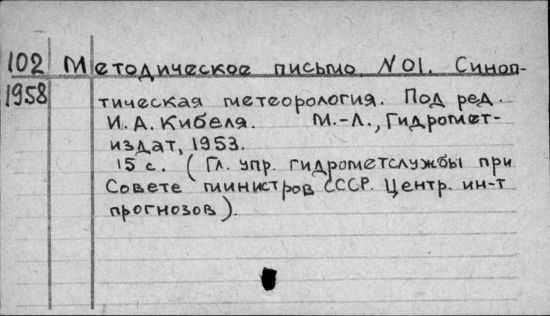 102 Методическое письмо. N01. Синоп-
1958 тическая метеорология. Под ред.
И. А. Кибеля. М.-Л., Гидромет-
издат, 1953.
15 с. (Гл. упр. гидрометслужбы при
Совете министров СССР. Центр. ин-т
прогнозов).